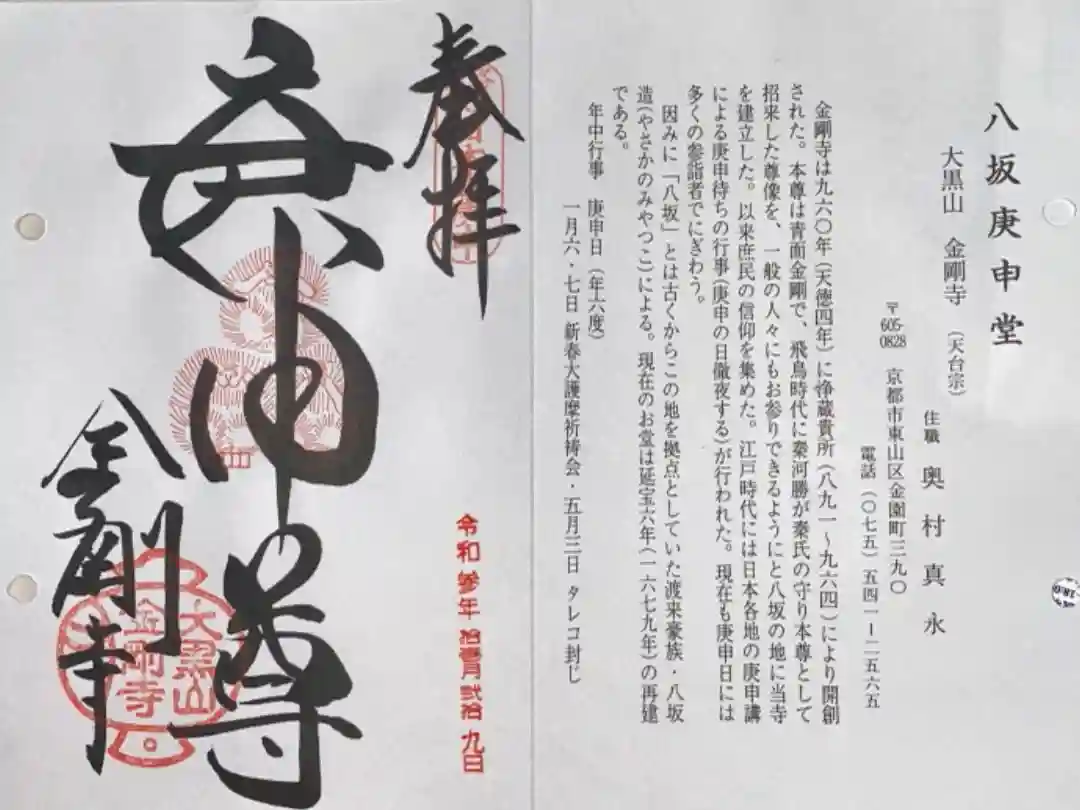 八坂庚申堂
大黒山　金剛寺　（天台宗）
住職　奥村真永
〒605-0828　京都市東山区金園町三九〇
電話（〇七五）五四一ー二五六五
金剛寺は九六〇年（天徳四年）に浄蔵貴所（八九一～九六四）により開創
された。本尊は青面金剛で、飛鳥時代に秦河勝が秦氏の守り本尊として
招来した尊像を、一般の人々にもお参りできるようにと八坂の地に当寺
を建立した。以来庶民の信仰を集めた。江戸時代には日本各地の庚申講
による庚申待ちの行事（庚申の日徹夜する）が行われた。現在も庚申日には
多くの参詣者でにぎわう。
因みに「八坂」とは古くからこの地を拠点としていた渡来豪族・八坂
造（やさかのみやつこ）による。現在のお堂は延宝六年（一六七九年）の再建
である。
年中行事　庚申日（年六度）
一月六・七日 新春大護摩祈祷会・五月三日 タレコ封じ
奉拝
庚申尊
金剛寺
大黒山
金剛寺
令和参年拾壱月弐拾九日